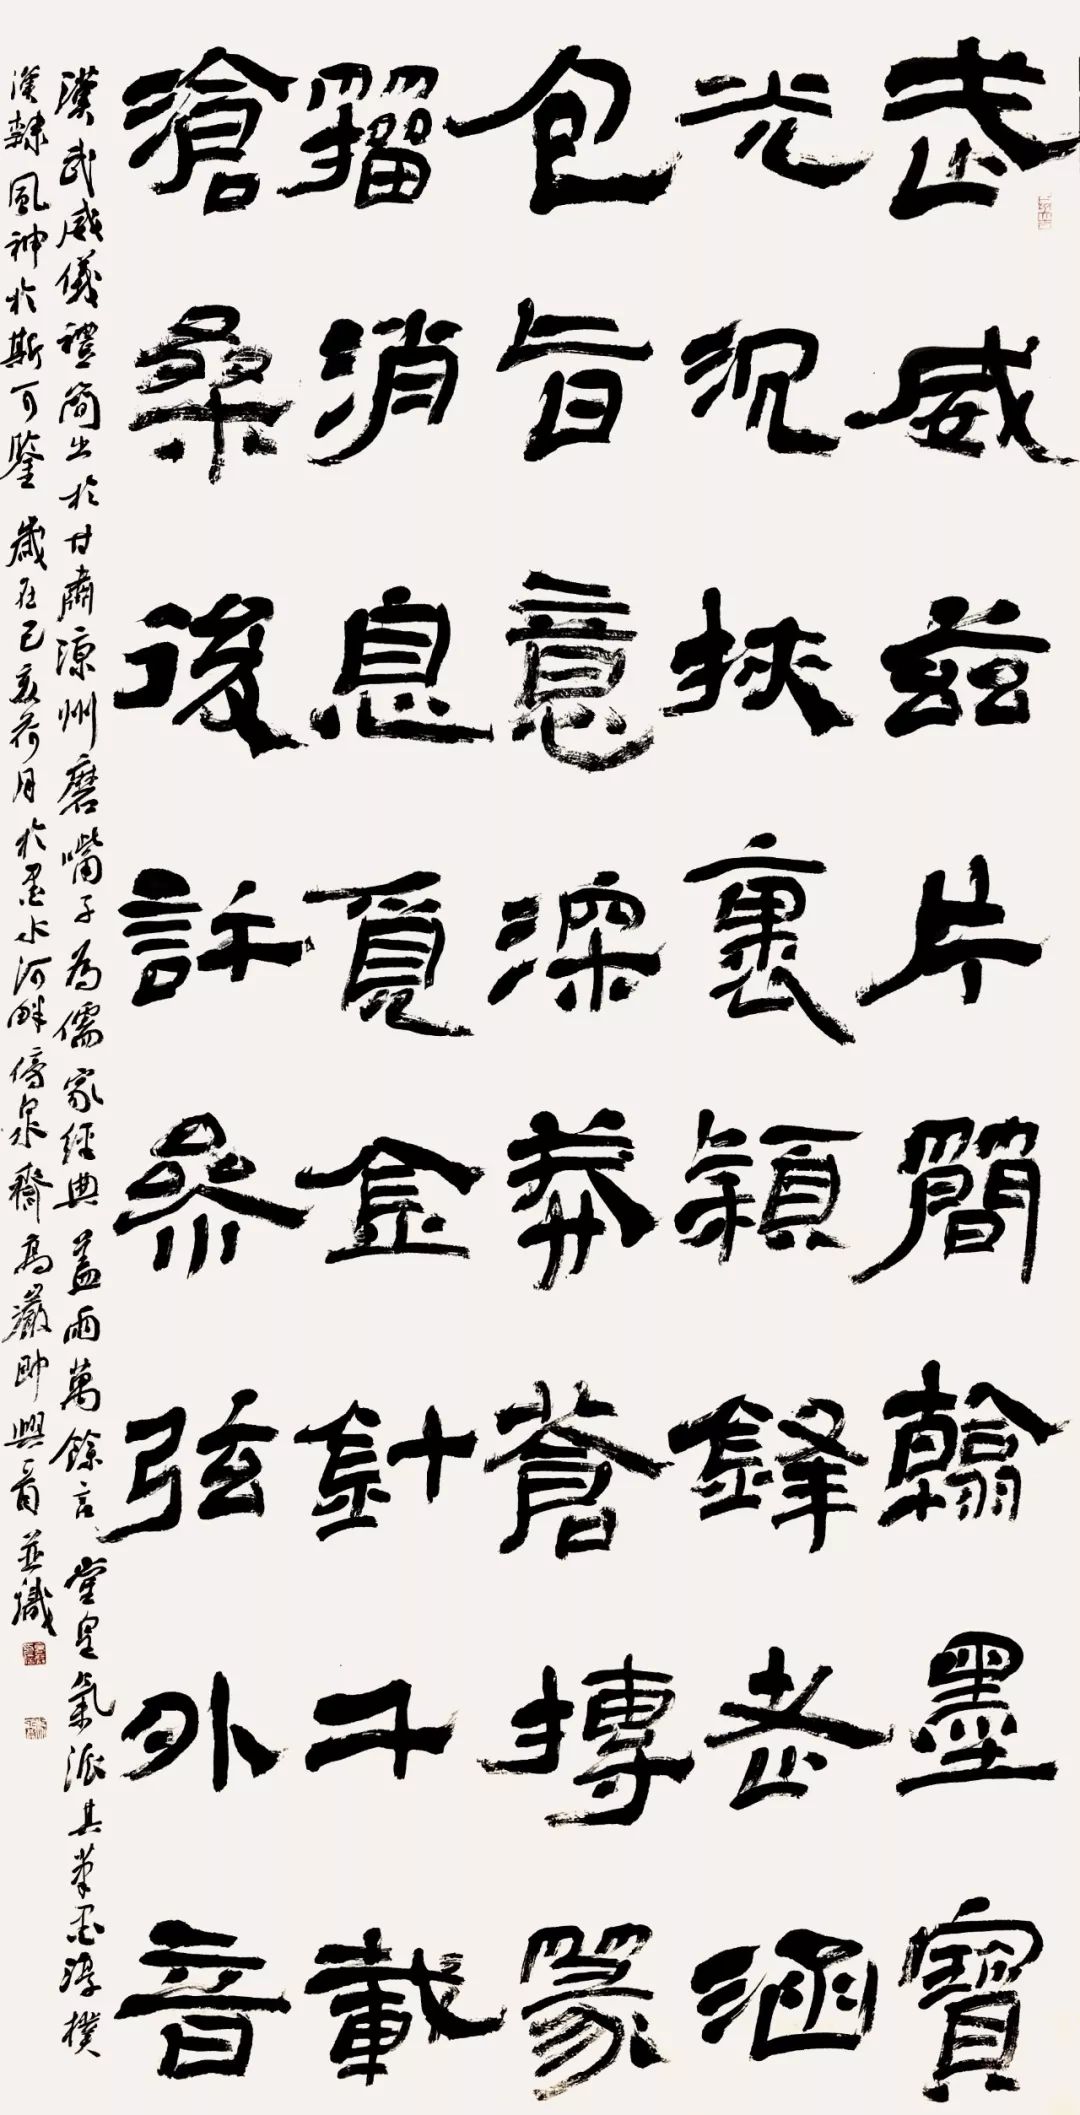 武威兹片簡翰墨寶
光沉挾裏穎鋒老涵
包旨意深莽蒼摶篆
籀消息覓金針千載
滄桑後許參弦外音
漢武威儀禮簡出於甘肅凉州磨嘴子為儒家經典蓋兩萬餘言堂皇氣派其筆墨淳樸
漢隸風神於斯可鑒 歲在己亥荷月於墨水河畔傍泉齋高巖即興並識